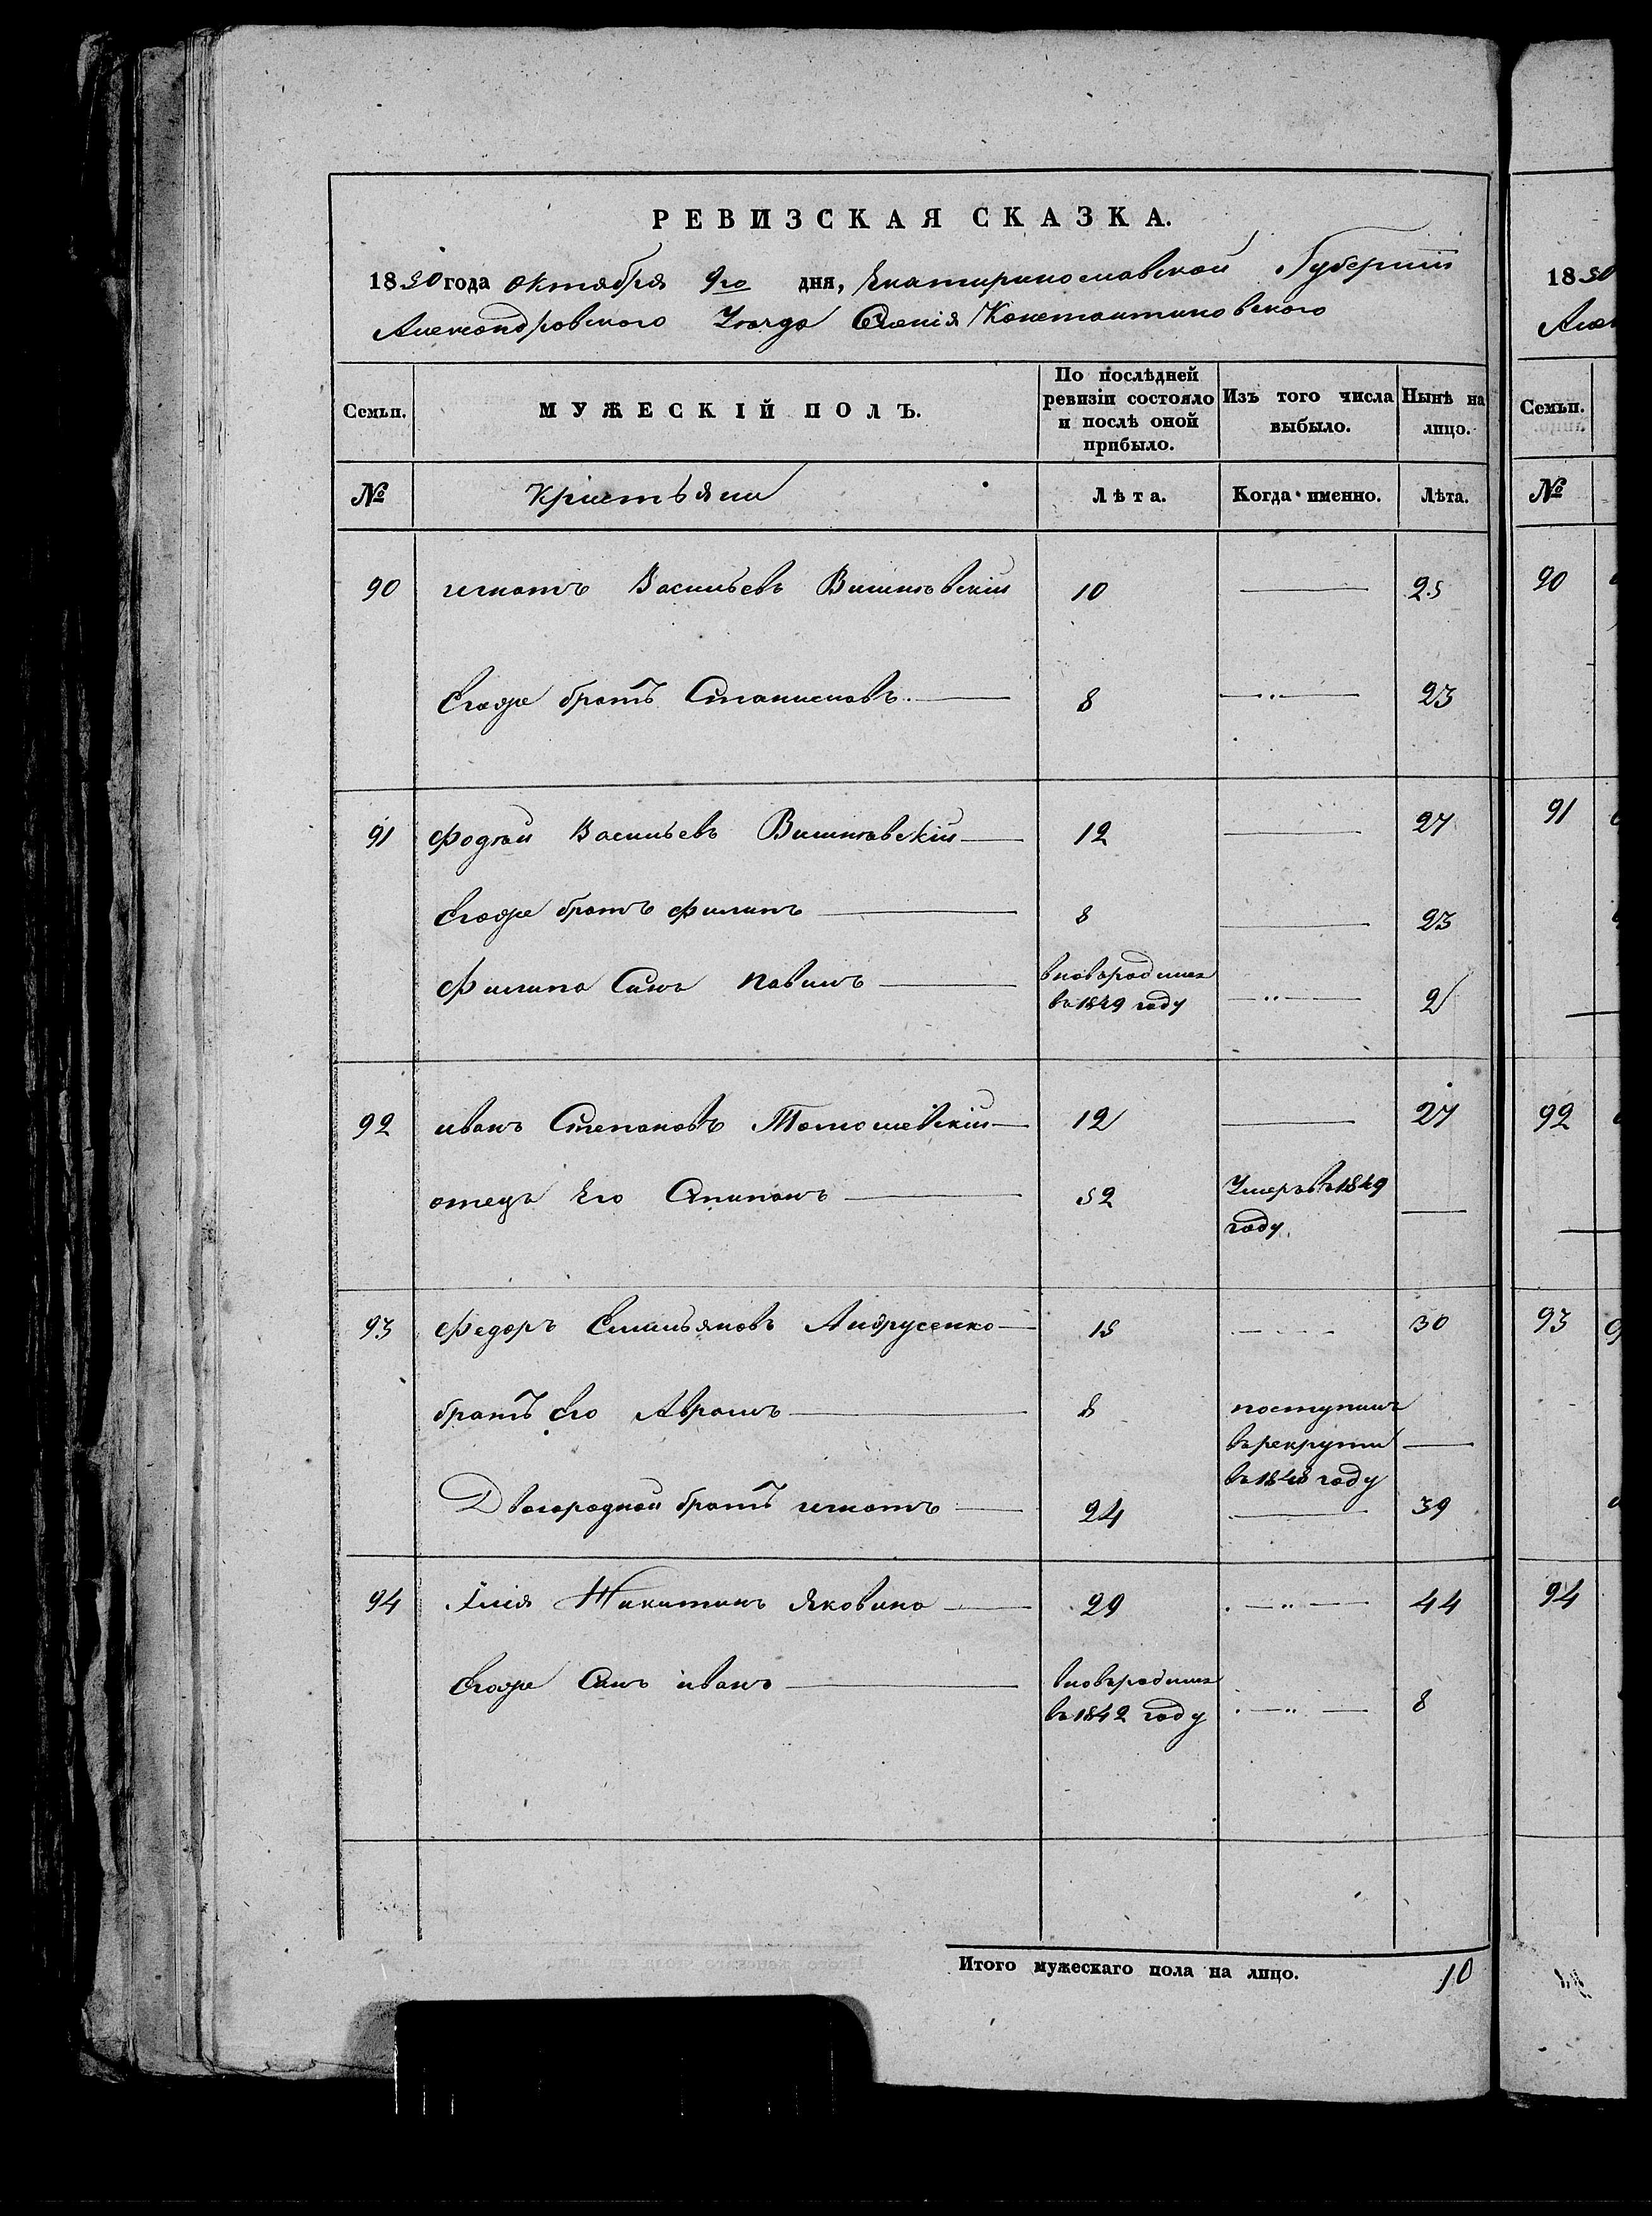 РЕВИЗСКАЯ СКАЗКА.
1850 года октября 9го дня, Екатеринославской Губернии
Александровского Уезда Селенія Константиновского
Семьи. МУЖЕСКІЙ ПОЛЪ. По послѣдней ревизіи состояло и послѣ оной прибыло. Изъ того числа выбыло. Нынѣ на лицо.
№ Кристьяни Лѣта. Когда именно. Лѣта.
90 игнатъ Васильевъ Вишневскій 10 — 25
Егоже братъ Станиславъ — 8 — 23
91 Фадѣй Васильевъ Вишневскій — 12 — 27
Егоже братъ Филипъ — 8 — 23
Филипа Синъ Павилъ — вновьродился въ 1849 году — 2
92 иванъ Степановъ Томошевскій — 12 — 27
отецъ Его Стипанъ — 52 Умеръ въ 1849 году. —
93 Федоръ Емильяновъ Андрусенко — 15 — 30
братъ его Аврамъ — 8 поступилъ въ рекрути въ 1848 году —
Двоюродной братъ игнатъ — 24 — 39
94 Ілія Никитинъ Яковина — 29 — 44
Егоже Синъ иванъ — вновьродился въ 1842 году — 8
Итого мужескаго пола на лицо. 10
1850
Алек
Семьи.
№
90
91
92
93
94